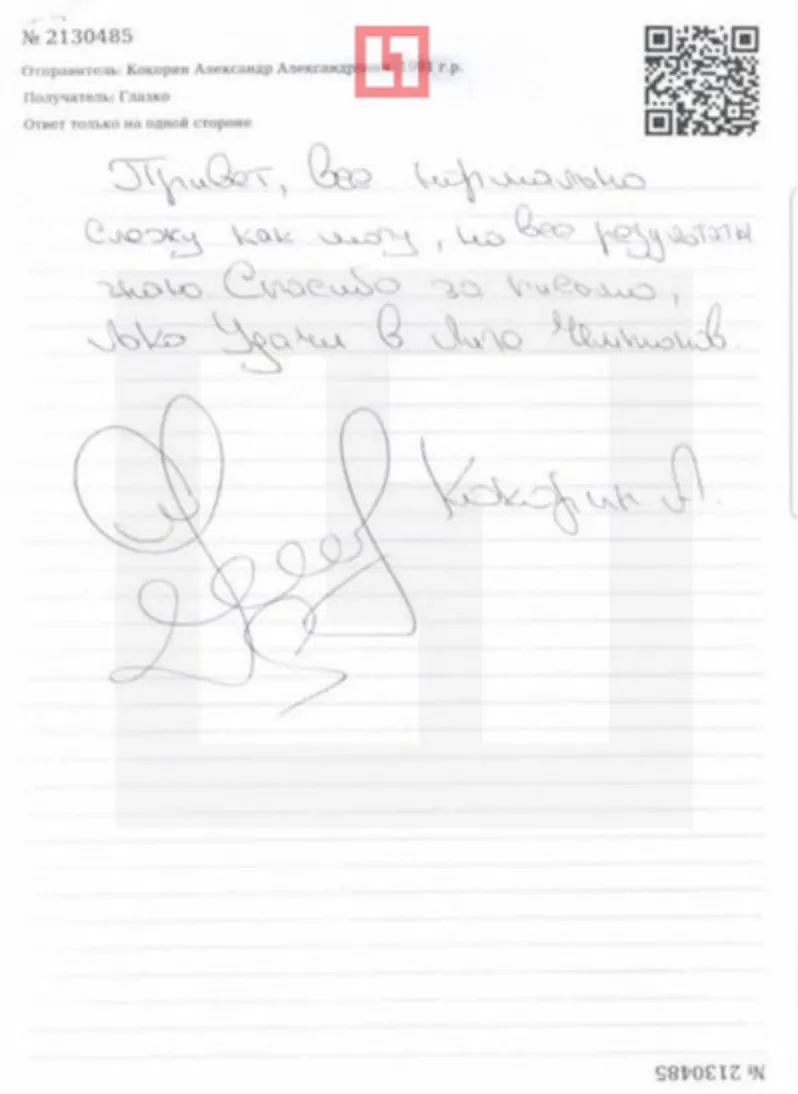 № 2130485
Отправитель: Кокорин Александр Александрович 1991 г.р.
Получатель: Глазко
Ответ только на одной стороне
Привет, все нормально
Слежу как могу, но все результаты
знаю Спасибо за письмо,
Локо Удачи в Лиге Чемпионов.
Кокорин А.
№ 2130485